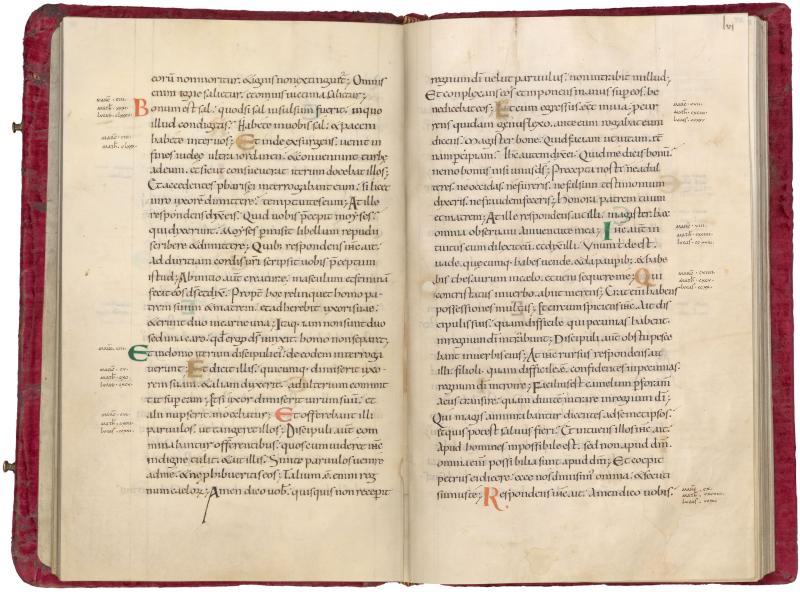 eorū non moritur. & ignis non extinguit᷑; Omnis
enim igne salietur. et omnis uictima salietur;
Bonum est sal. quodsi sal insulsum fuerit. in quo
illud condietis; Habete in uobis sal. & pacem
habete inter uos; Et inde exsurgens. uenit in
fines iudeę ultra iordanen. & conueniunt turbę
ad eum. et sicut consueuerat iterum docebat illos;
Et accedentes pharisei interrogabant eum. si licet
uiro uxorē dimittere. temptantes eum; At ille
respondens dixit eis. Quid uobis p̄cepit moyses.
qui dixerunt. Moyses p̄misit libellum repudii
scribere & dimittere; Quib; respondens ih̄s ait.
ad duritiam cordis uri scripsit uobis p̄ceptum
istud; Ab initio aut̄ creaturę. masculum et feminā
fecit eos d̄s et dixit. Propt̄ hoc relinquet homo pa
trem suū & matrem. et adherebit uxori suae.
& erunt duo in carne una; Itaq; iam non sunt duo
sed una caro. qd̄ ergo d̄s iunxit. homo non separet;
Et in domo iterum discipuli ei; de eodem interroga
uerunt; Et dicit illis. quicumq; dimiserit uxo
rem suam. & aliam duxerit. adulterium commit
tit sup eam; Et si uxor dimiserit uirum suū. et
alii nupserit moechatur; Et offerebant illi
paruulos. ut tangeret illos; Discipuli aut̄ com
minabantur offerentibus. quos cum uideret ih̄s
indigne tulit. & ait illis. Sinite paruulos uenire
ad me. & ne phibueritis eos; Talium ē. enim reg
num caelorꝝ; Amen dico uob̄. quisquis non receperit
regnum d̄i uelut paruulus. non intrabit in illud;
Et conplexans eos et inponens manus sup eos. be
nedicebat eos; Et cum egressus eēt in uia. pcur
rens quidam genu flexo. ante eum rogabat eum
dicens. Magister bone. Quid faciam ut uitam. aet̄
nam pcipiam. Ih̄s aut̄ dix ei. Quid me dicis bonū.
nemo bonus nisi unus d̄s; Precepta nosti. ne adul
teres. ne occidas. ne fureris. ne falsum testimonium
dixeris. ne fraudem feceris; honora patrem tuum
et matrem; At ille respondens ait illi. magister. haec
omnia obseruaui a iuuentute mea; Ih̄s aut̄ in
tuitus eum dilexit eū. et dixit illi. Unum t̄ de est.
uade. quęcumq; habes uende. & da paupib;. & habe
bis thesaurum in caelo. et ueni sequere me; Qui
contristatus in uerbo. abiit merens; Erat enī habens
possessiones multas; Et circum spiciens ih̄s. ait dis
cipulis suis. quam difficile qui pecunias habent.
in regnum d̄i introibunt; Discipuli aut̄ obstupesce
bant in uerbis eius; At ih̄s rursus respondens ait
illi. filioli. quam difficile ē. confidentes in pecuniis
regnum d̄i introire; Facilius est camelum p foramē
acus transire. quam diuitē intrare in regnum d̄i;
Qui magis ammirabantur dicentes ad semetipsos.
et quis potest saluus fieri. Et intuens illos ih̄s ait.
Apud homines impossibile est. sed non apud dm̄.
omnia enī possibilia sunt apud dm̄; Et coepit
petrus ei dicere. ecce nos dimisim; omnia. & secuti
sumus te; Respondens ih̄s. ait. Amen dico uobis.